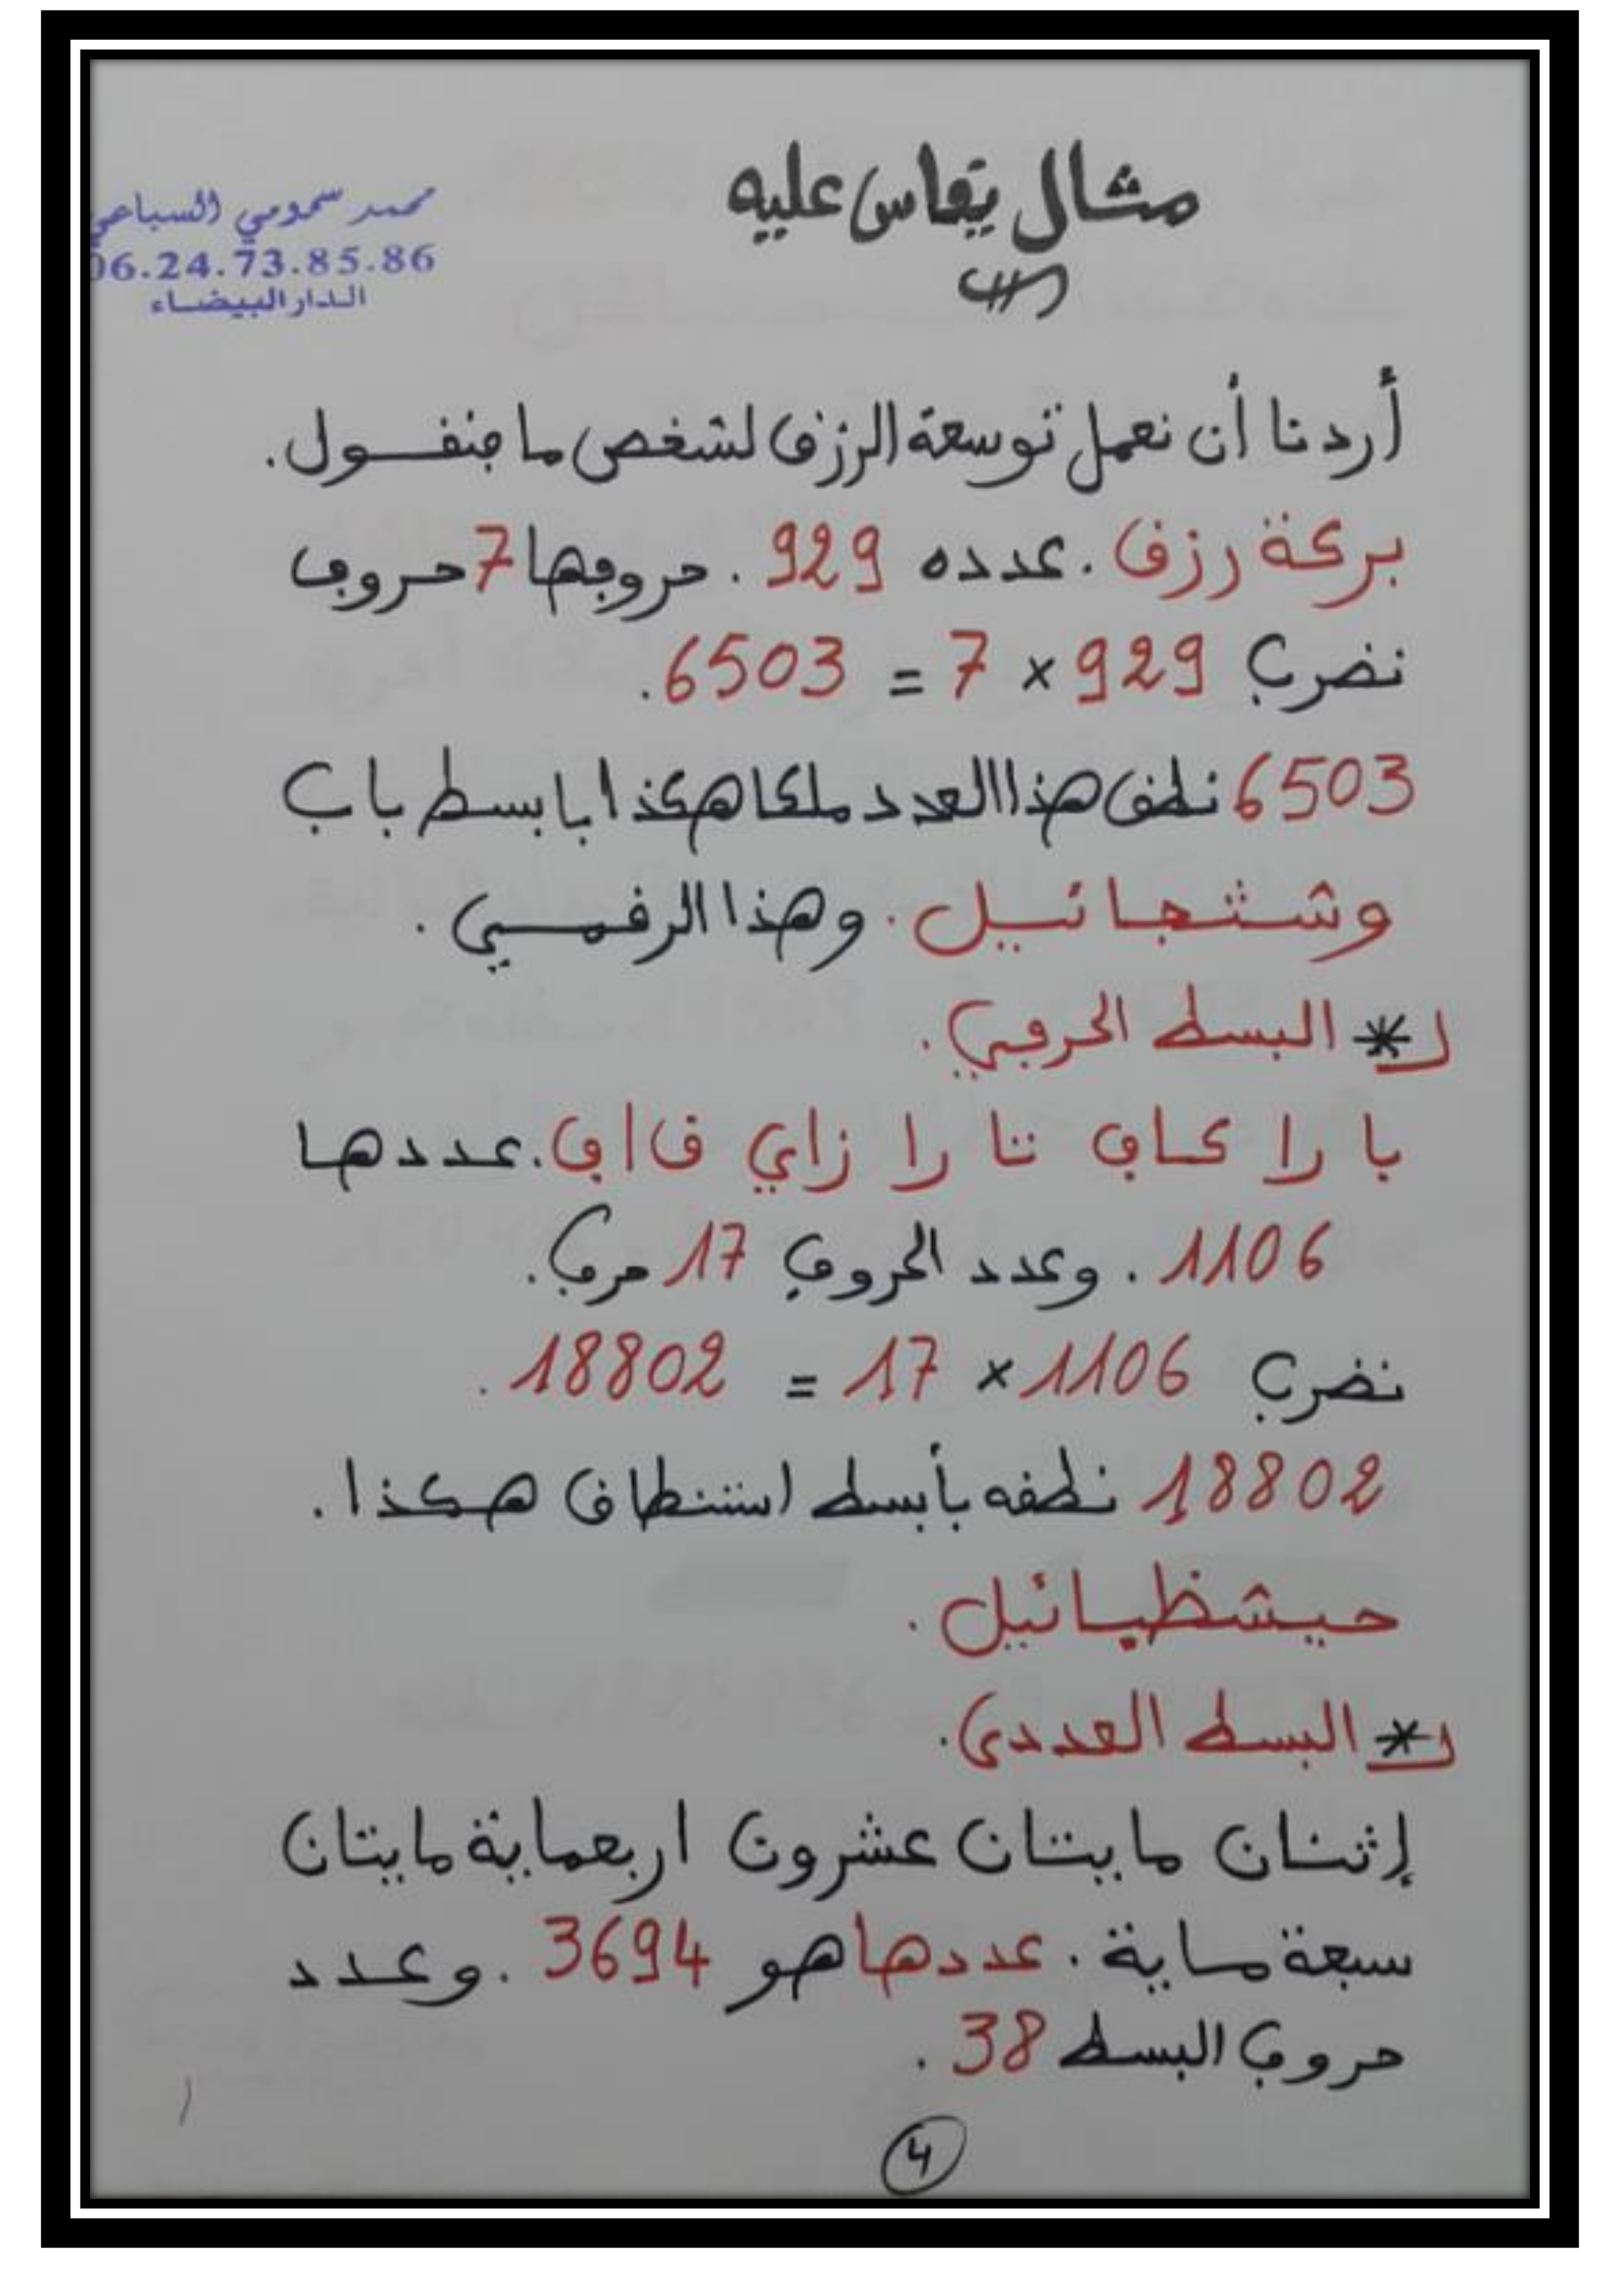 مثال يقاس عليه
محمد سمومي السباعي
06.24.73.85.86
الدار البيضاء
أردنا أن نعمل توسعة الرزق لشخص ما فنقول.
بركة رزق. عدده 929. حروفها 7 حروف
نضرب 929 × 7 = 6503.
6503 نطق هذا العدد ملكا هكذا بابسط باب
وشثجائيل. وهذا الرقمي.
* البسط الحرفي.
با را كاف تا را زاي قاف. عددها
1106. وعدد الحروف 17 حرف.
نضرب 1106 × 17 = 18802.
18802 نطقه بأبسط استنطاق هكذا.
حيشظيائيل.
* البسط العددي.
إثنان مايتان عشرون اربعماية مايتان
سبعة ماية. عددها هو 3694. وعدد
حروف البسط 38.
4